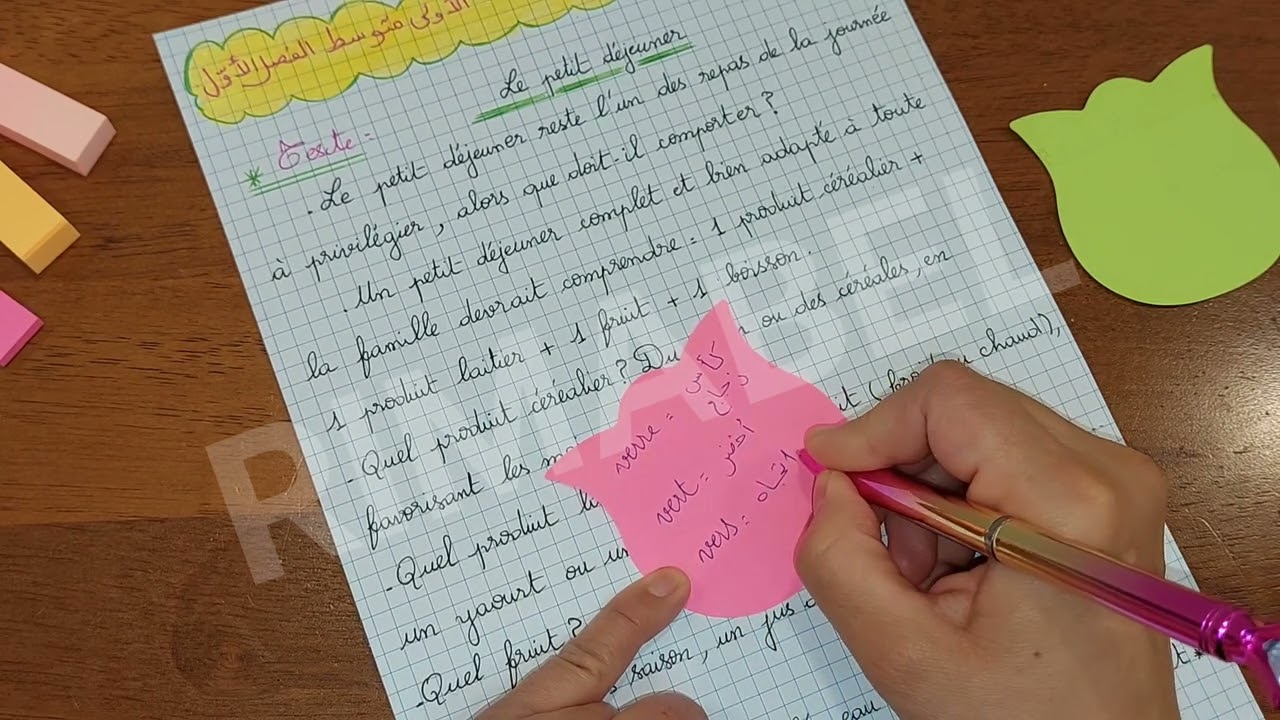 الأولى متوسط الفصل الأول
Le petit déjeuner
* Texte =
. Le petit déjeuner reste l'un des repas de la journée
à privilégier, alors que doit-il comporter ?
. Un petit déjeuner complet et bien adapté à toute
la famille devrait comprendre = 1 produit céréalier +
1 produit laitier + 1 fruit + 1 boisson.
- Quel produit céréalier ? Du ou des céréales, en
favorisant les
- Quel produit (froid ou chaud),
un yaourt ou
- Quel fruit ?
saison, un jus
eau
verre = كأس
زجاج
vert = أخضر
vers = اتجاه
RIMABEL